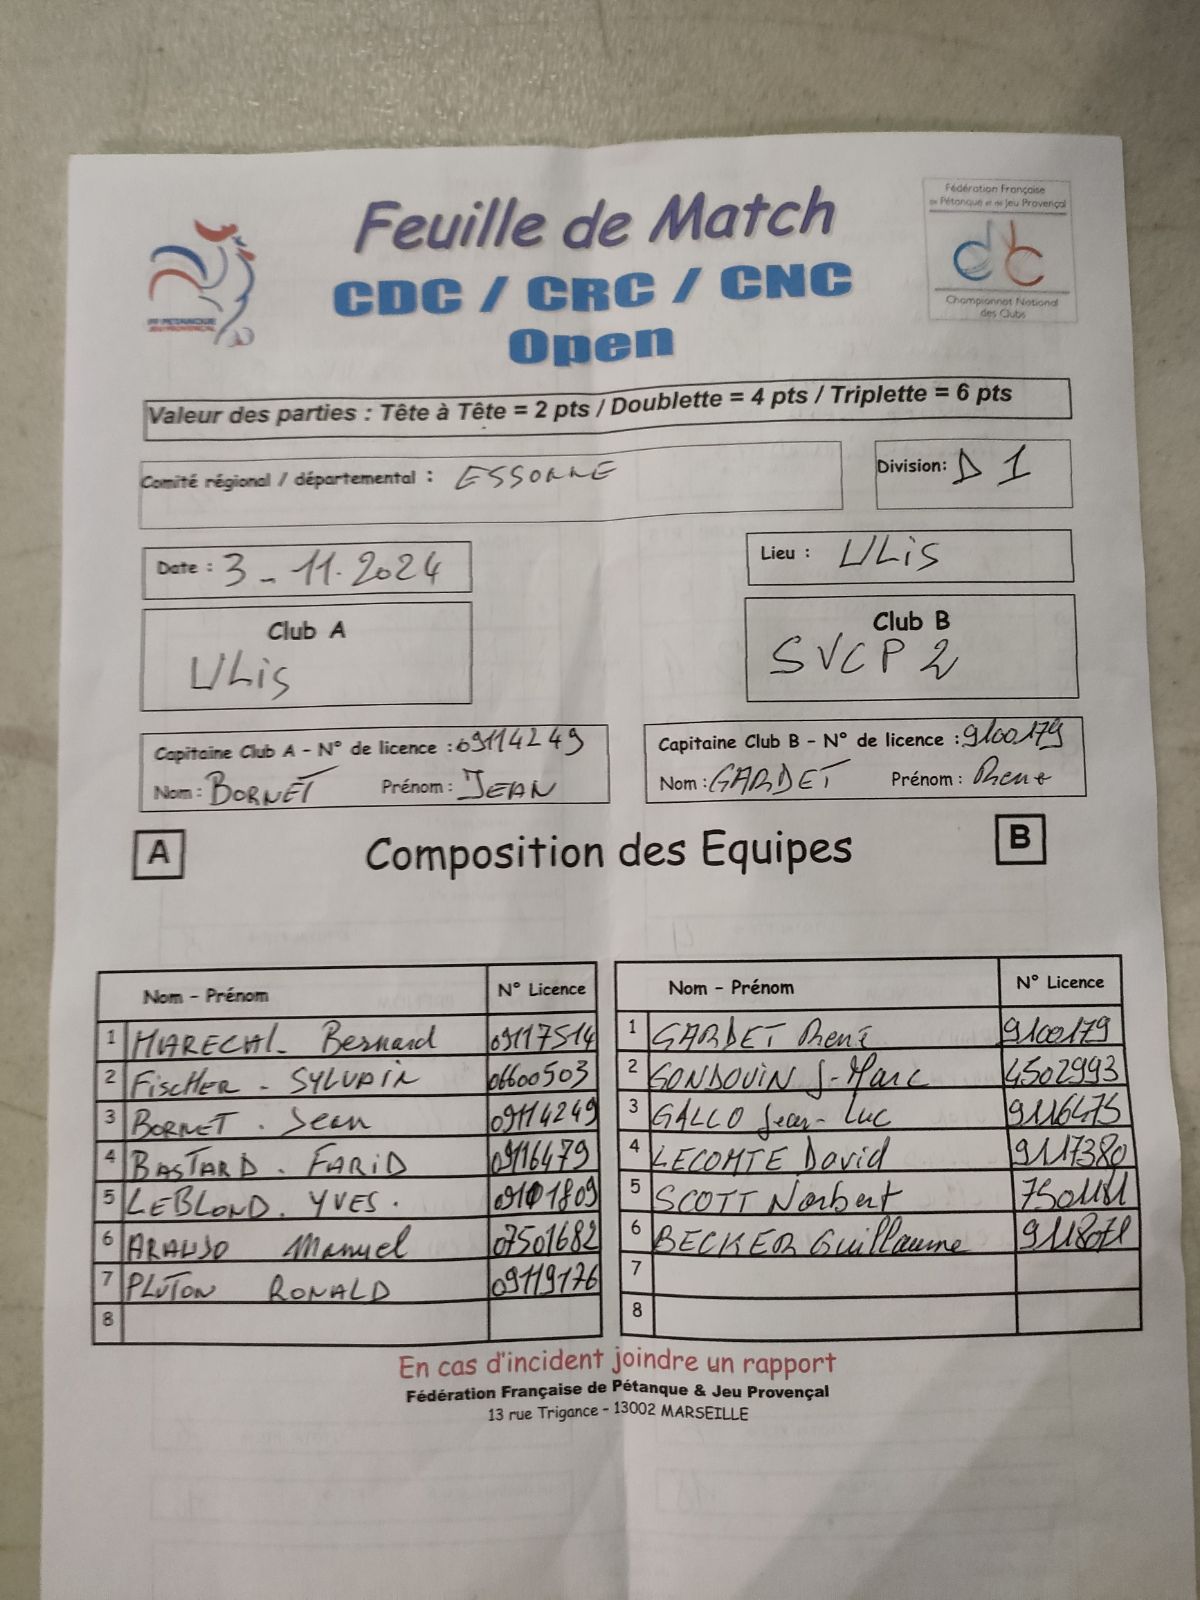 Feuille de Match
CDC / CRC / CNC
Open
FF PETANQUE
JEU PROVENÇAL
Fédération Française
de Pétanque et de Jeu Provençal
Championnat National
des Clubs
Valeur des parties : Tête à Tête = 2 pts / Doublette = 4 pts / Triplette = 6 pts
Comité régional / départemental : ESSONNE
Division: D 1
Date : 3-11.2024
Lieu : ULis
Club A
ULis
Club B
SVCP 2
Capitaine Club A - N° de licence : 09114249
Nom : BORNET Prénom : JEAN
Capitaine Club B - N° de licence : 9100179
Nom : GARDET Prénom : René
A Composition des Equipes B
Nom - Prénom N° Licence
1 MARECHAL Bernard 09117514
2 FiscHER - SYLVAIN 06600503
3 BORNET . Jean 09114249
4 BASTARD . FARID 09116479
5 LEBLOND. YVES. 09101809
6 ARAUJO Manuel 07501682
7 PLUTON RONALD 09119176
8
Nom - Prénom N° Licence
1 GARDET René 9100179
2 GONDOUIN J-Marc 4502993
3 GALLO Jean-Luc 9116475
4 LECOMTE David 9117380
5 SCOTT Norbert
6 BECKER Guillaume 9118071
7
8
En cas d'incident joindre un rapport
Fédération Française de Pétanque & Jeu Provençal
13 rue Trigance - 13002 MARSEILLE